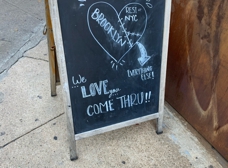 BROOKLYN
REST of NYC
EVERYTHING
ELSE!
We
LOVE you
COME THRU!!